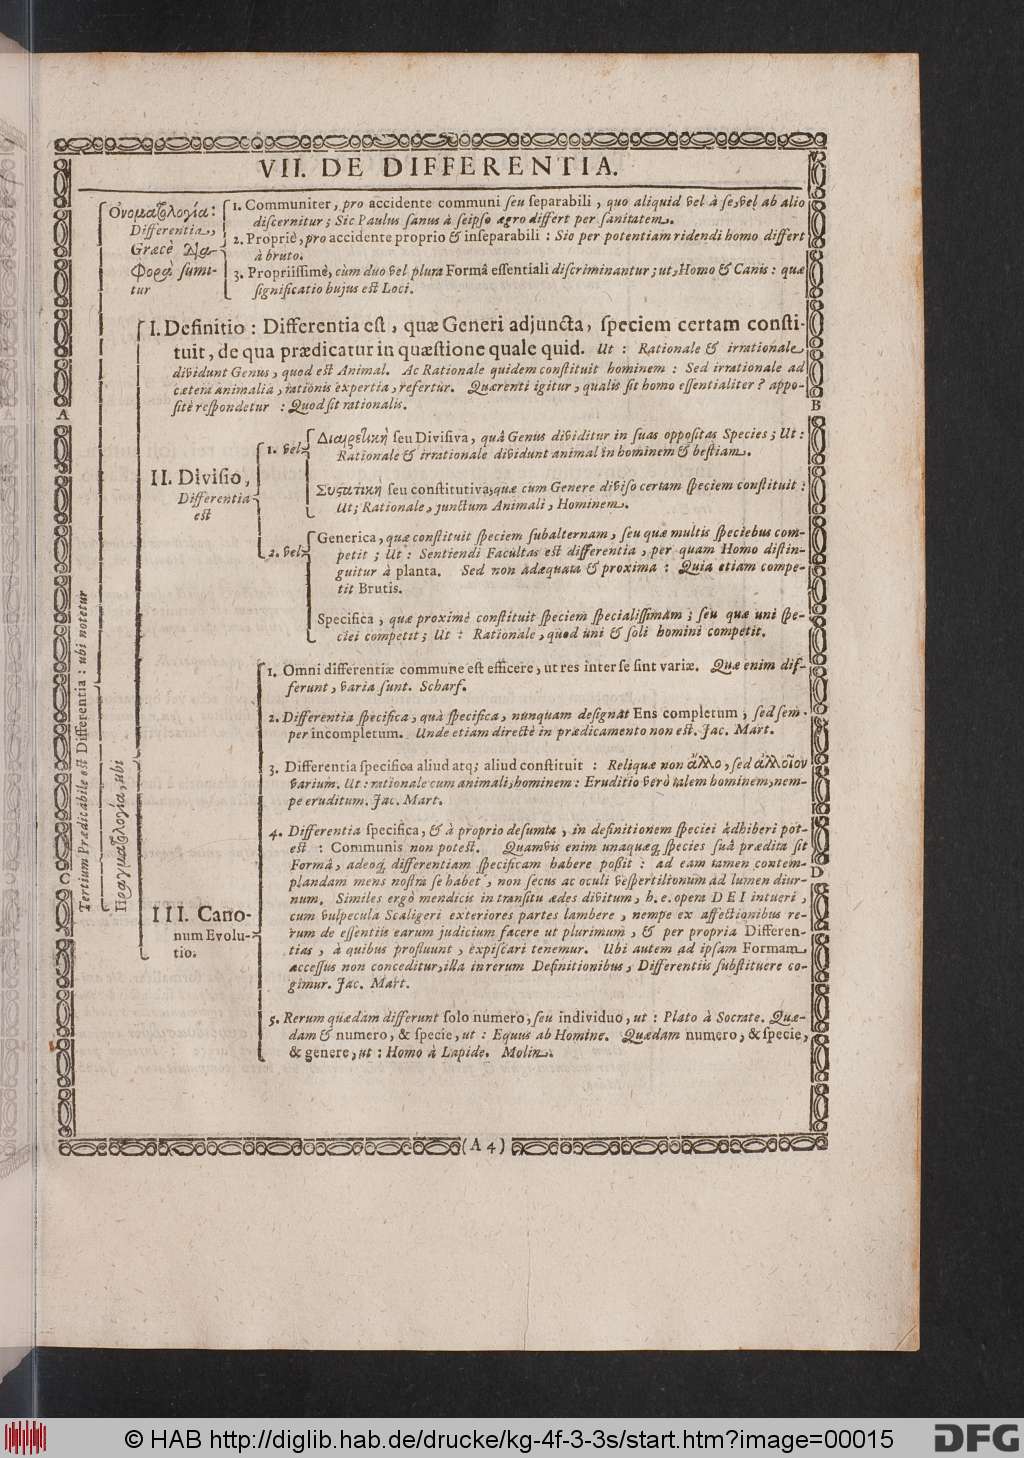 VII. DE DIFFERENTIA.
Tertium Prædicabile est Differentia : ubi notetur
Ὀνοματολογία:
Differentia,
Græcè Δια-
φορὰ sumi-
tur
1. Communiter, pro accidente communi seu separabili, quo aliquid vel à se, vel ab alio
discernitur; Sic Paulus sanus à seipso ægro differt per sanitatem.
2. Propriè, pro accidente proprio & inseparabili : Sic per potentiam ridendi homo differt
à bruto.
3. Propriissimè, cùm duo vel plura Formâ essentiali discriminantur; ut, Homo & Canis: quæ
significatio hujus est Loci.
Πραγματολογία, ubi
I. Definitio : Differentia est, quæ Generi adjuncta, speciem certam consti-
tuit, de qua prædicatur in quæstione quale quid. Ut : Rationale & irrationale
dividunt Genus, quod est Animal. Ac Rationale quidem constituit hominem : Sed irrationale ad
cætera animalia, rationis expertia, refertur. Quærenti igitur, qualis sit homo essentialiter? appo-
sitè respondetur : Quod sit rationalis.
A
B
II. Divisio,
Differentia
est
1. vel
Διαιρετικὴ seu Divisiva, quâ Genus dividitur in suas oppositas Species; Ut:
Rationale & irrationale dividunt animal in hominem & bestiam.
Συστατικὴ seu constitutiva, quæ cum Genere diviso certam speciem constituit:
Ut; Rationale, junctum Animali, Hominem.
2. vel
Generica, quæ constituit speciem subalternam, seu quæ multis speciebus com-
petit; Ut : Sentiendi Facultas est differentia, per quam Homo distin-
guitur à planta. Sed non adæquata & proxima : Quia etiam compe-
tit Brutis.
Specifica, quæ proximè constituit speciem specialissimam; seu quæ uni spe-
ciei competit; Ut : Rationale, quod uni & soli homini competit.
III. Cano-
num Evolu-
tio.
1. Omni differentiæ commune est efficere, ut res inter se sint variæ. Quæ enim dif-
ferunt, varia sunt. Scharf.
2. Differentia specifica, quà specifica, nunquam designat Ens completum, sed sem-
per incompletum. Unde etiam directè in prædicamento non est. Jac. Mart.
3. Differentia specifica aliud atq; aliud constituit : Reliquæ non ἄλλο, sed ἀλλοῖον
varium. Ut: rationale cum animali, hominem: Eruditio verò talem hominem, nem-
pe eruditum. Jac. Mart.
4. Differentia specifica, & à proprio desumta, in definitionem speciei adhiberi pot-
est : Communis non potest. Quamvis enim unaquæq; species suâ prædita sit
Formâ, adeoq; differentiam specificam habere possit : ad eam tamen contem-
plandam mens nostra se habet, non secus ac oculi vespertilionum ad lumen diur-
num. Similes ergò mendicis in transitu ædes divitum, h.e. opera DEI intueri,
cum vulpecula Scaligeri exteriores partes lambere, nempe ex affectionibus re-
rum de essentiis earum judicium facere ut plurimùm, & per propria Differen-
tias, à quibus profluunt, expiscari tenemur. Ubi autem ad ipsam Formam
accessus non conceditur, illa in rerum Definitionibus, Differentiis substituere co-
gimur. Jac. Mart.
5. Rerum quædam differunt solo numero, seu individuo, ut : Plato à Socrate. Quæ-
dam & numero, & specie, ut : Equus ab Homine. Quædam numero, & specie,
& genere, ut : Homo à Lapide. Molin.
C
D
(A 4)
© HAB http://diglib.hab.de/drucke/kg-4f-3-3s/start.htm?image=00015
DFG